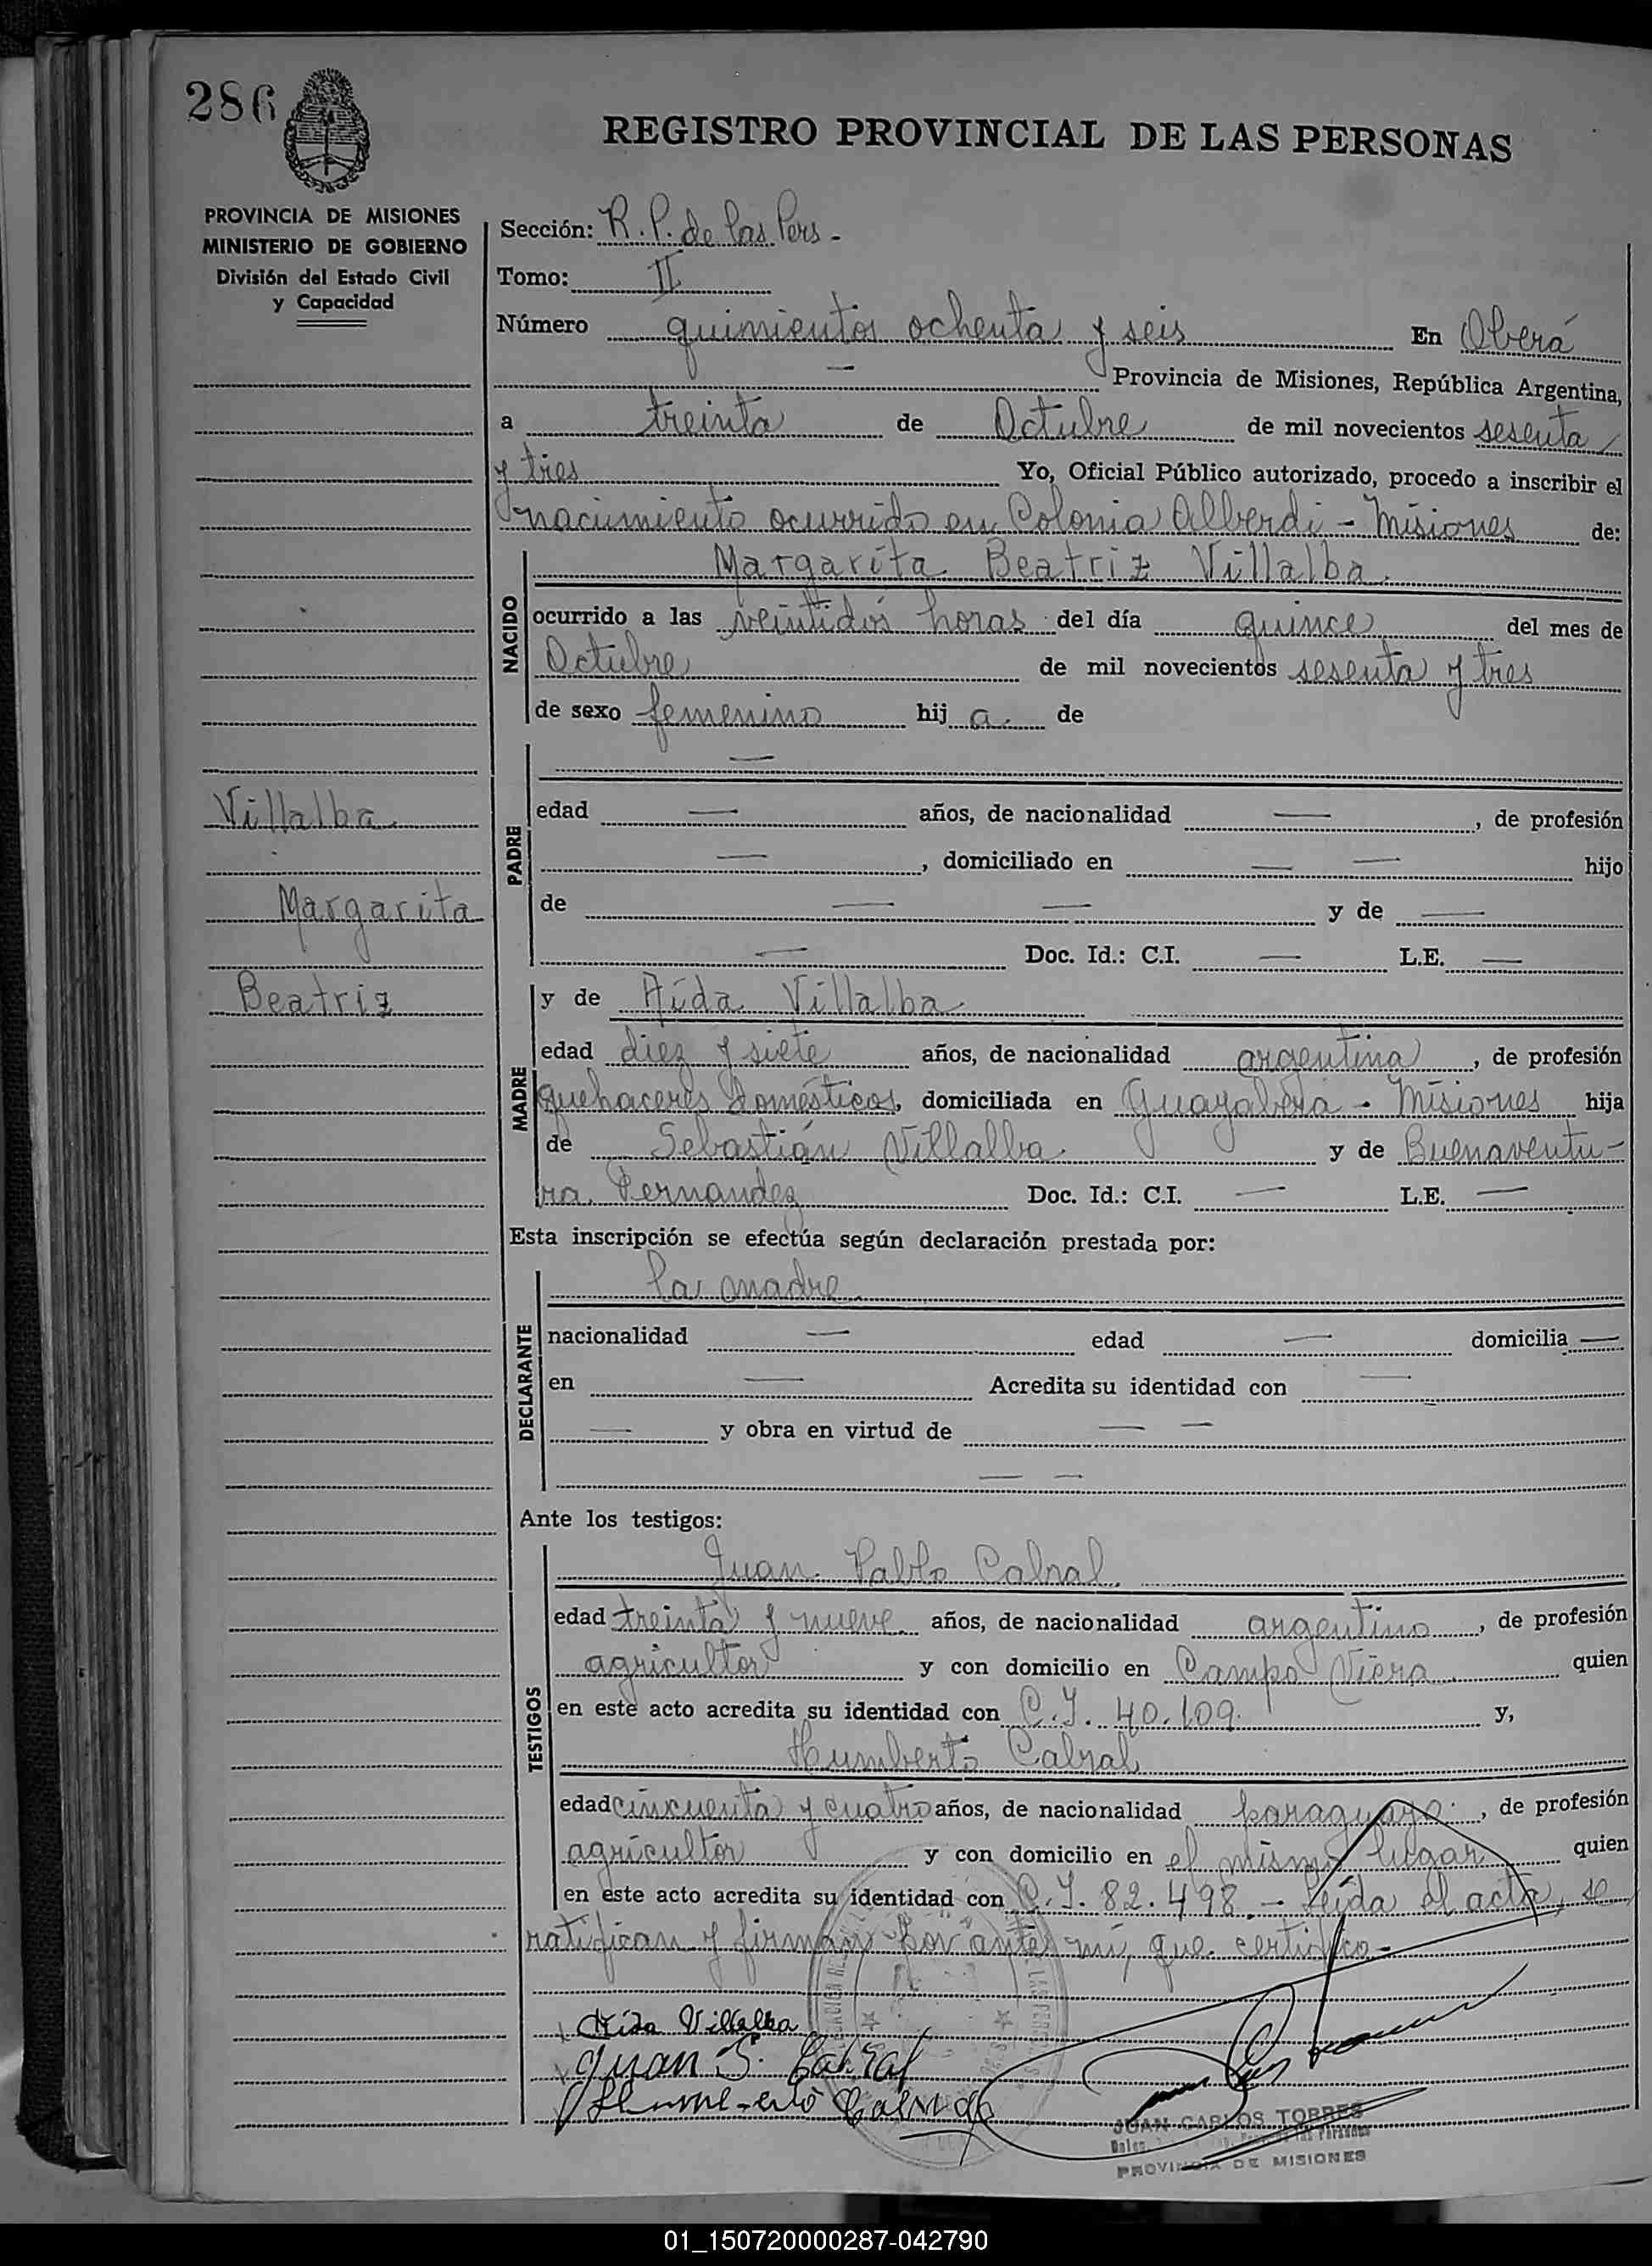 286
REGISTRO PROVINCIAL DE LAS PERSONAS
PROVINCIA DE MISIONES
MINISTERIO DE GOBIERNO
División del Estado Civil
y Capacidad
Sección: R. P. de las Pers -
Tomo: II
Número quinientos ochenta y seis En Oberá
— Provincia de Misiones, República Argentina,
a treinta de Octubre de mil novecientos sesenta
y tres Yo, Oficial Público autorizado, procedo a inscribir el
nacimiento ocurrido en Colonia Alberdi - Misiones de:
NACIDO
Margarita Beatriz Villalba
ocurrido a las veintidós horas del día quince del mes de
Octubre de mil novecientos sesenta y tres
de sexo femenino hij a de
PADRE
—
edad — años, de nacionalidad —, de profesión
—, domiciliado en — — hijo
de — — y de —
— Doc. Id.: C.I. — L.E. —
Villalba
Margarita
Beatriz
MADRE
y de Aída Villalba
edad diez y siete años, de nacionalidad argentina, de profesión
quehaceres domésticos, domiciliada en Guayabera - Misiones hija
de Sebastián Villalba y de Buenaventu-
ra Fernandez Doc. Id.: C.I. — L.E. —
Esta inscripción se efectúa según declaración prestada por:
DECLARANTE
la madre
nacionalidad — edad — domicilia —
en — Acredita su identidad con —
— y obra en virtud de — —
— —
Ante los testigos:
TESTIGOS
Juan Pablo Cabral
edad treinta y nueve años, de nacionalidad argentino, de profesión
agricultor y con domicilio en Campo Viera quien
en este acto acredita su identidad con C.I. 40.109. y,
Humberto Cabral
edad cincuenta y cuatro años, de nacionalidad paraguayo, de profesión
agricultor y con domicilio en el mismo lugar quien
en este acto acredita su identidad con C.I. 82.498. - Leída el acta, se
ratifican y firman por ante mí, que certifico -
Aida Villalba
Juan P. Cabral
JUAN CARLOS TORRES
PROVINCIA DE MISIONES
01_150720000287-042790